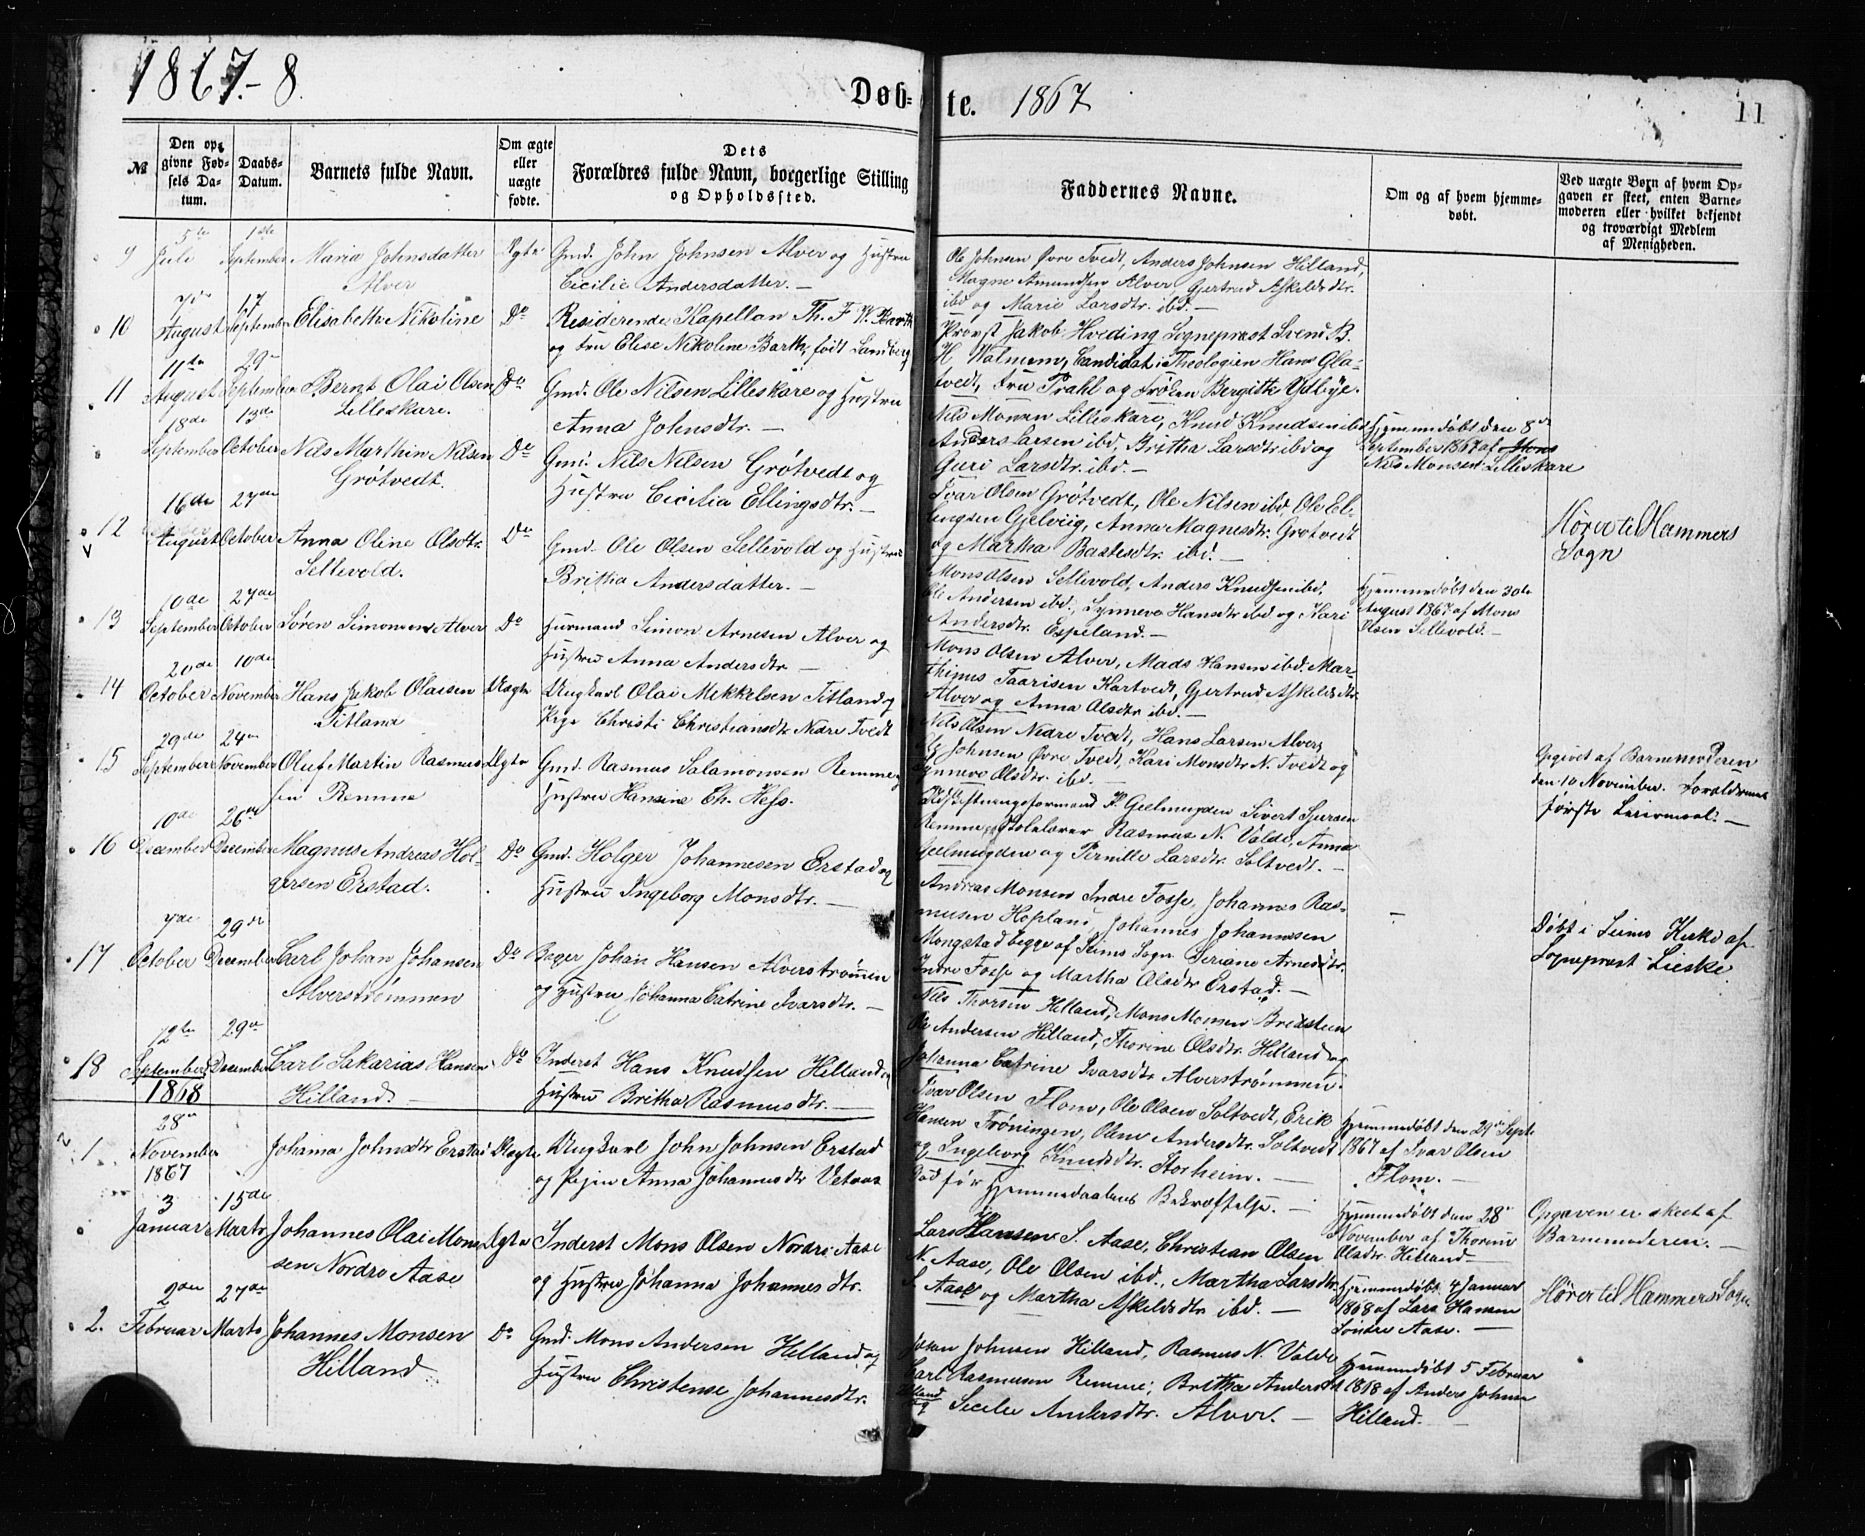 1867.-8.
Døb=
te. 1867
11
№
Den op=
givne Fød=
sels Da=
tum.
Daabs=
Datum.
Barnets fulde Navn.
Om ægte
eller
uægte
fødte.
Dets
Forældres fulde Navn, borgerlige Stilling
og Opholdssted.
Faddernes Navne.
Om og af hvem hjemme=
døbt.
Ved uægte Børn af hvem Op=
gaven er skeet, enten Barne=
moderen eller hvilket bekjendt
og troværdigt Medlem
af Menigheden.
9
5te
Juli
1ste
September
Maria Johnsdatter
Alver
Ægte
Gmd. John Johnsen Alver og Hustru
Cecilie Andersdatter. —
Ole Johnsen Øvre Tvedt, Anders Johnsen Hilland,
Magne Amundsen Alver, Gjertrud Askildsdtr.
ibd og Marie Larsdtr. ibd. —
10
7de
August
17
September
Elisabeth Nikoline
Do
Residerende Kapellan Th. F. W. Barth
og Fru Elise Nikoline Barth, født Landberg
Provst Jakob Hveding Sognepræst Svend B.
H. Walmem, Candidat i Theologien Hans Gla-
tvedt, Fru Prahl og Frøken Bergitte Ydbye.
11
11te
August
29
September
Bernt Olai Olsen
Lilleskare.
Do
Gmd. Ole Nilsen Lilleskare og Hustru
Anna Johnsdtr. —
Nils Monsen Lilleskare, Knud Knudsen ibd
Anders Larsen ibd, Britha Larsdtr ibd og
Guri Larsdtr. ibd. —
Hjemmedøbt den 8de
September 1867 af Mons
Nils Monsen Lilleskare
18de
September
13de
October
Nils Marthin Nilsen
Grøtvedt.
Do
Gmd. Nils Nilsen Grøtvedt og
Hustru Cicilia Ellingsdtr. —
Ivar Olsen Grøtvedt, Ole Nilsen ibd Ole El-
lingsen Gjelviig, Anna Magnesdtr. Grøtvedt
og Martha Bastesdtr. ibd. —
Hører til Hammers
Sogn
12
16de
August
27de
October
Anna Oline Olsdtr.
Sellevold.
Do
Gmd. Ole Olsen Sellevold og Hustru
Britha Andersdatter. —
Mons Olsen Sellevold, Anders Knudsen ibd,
Ole Andersen ibd., Synneve Hansdtr ibd og Kari
Andersdtr. Espeland. —
Hjemmedøbt den 30te
August 1867 af Mons
Olsen Sellevold. —
13
10de
September
27de
October
Søren Simonsen Alver
Do
Huusmand Simon Arnesen Alver og
Hustru Anna Andersdtr. —
Mons Olsen Alver, Mads Hansen ibd. Mar-
thinus Taarisen Hartvedt, Gjertrud Askildsdtr.
Alver og Anna Olsdtr ibd. —
14
20de
October
10de
November
Hans Jakob Olaisen
Titland
Uægte
Ungkarl Olai Mikkelsen Titland og
Pige Christi Christiansdtr. Nedre Tvedt
Nils Olsen Nedre Tvedt, Hans Larsen Alver,
Johnsen Øvre Tvedt, Kari Monsdtr N. Tvedt og
Synneve Olsdtr. ibd. —
Opgivet af Barnemoderen
den 10 November. Forældrenes
første Leiermaal. —
15
29de
September
24de
November
Oluf Martin Rasmus-
sen Remme
Ægte
Gmd. Rasmus Salamonsen Remme og
Hustru Hansine Ch. Hess.
P. Geelmuyden Sivert Sjursen
Remme, Skolelærer Rasmus N. Valde, Anna
Geelmuyden og Pernille Larsdtr. Soltvedt. —
16
10de
December
26de
December
Magnus Andreas Hol-
gersen Erstad.
Do
Gmd. Holger Johannesen Erstad og
Hustru Ingeborg Monsdtr. —
Andreas Monsen Indre Fosse, Johannes Ras-
musen Hopland, Johannes Johannesen
Mongstad begge af Seims Sogn Seriane Arnesdtr.
Indre Fosse og Martha Olsdtr Erstad. —
—
Døbt i Seims Kirke af
Sognepræst Lieske
17
7de
October
29de
December
Carl Johan Johansen
Alverstrømmen
Do
Bager Johan Hansen Alverstrømmen
og Hustru Johanna Catrine Ivarsdtr. —
Nils Thorsen Hilland, Mons Monsen Bredsteen
Ole Andersen Hilland, Thorine Olsdtr. Hilland og
Johanna Catrine Ivarsdtr Alverstrømmen.
18
12te
September
29de
December
Carl Sakarias Hansen
Hilland.
Do
Inderst Hans Knudsen Hilland og
Hustru Britha Rasmusdtr. —
Ivar Olsen Flom, Ole Olsen Soltvedt, Erik
Hansen Frøningen, Oline Andersdtr. Soltvedt
og Ingeborg Knudsdtr. Storheim. —
Hjemmedøbt den 29de Septr
1867 af Ivar Olsen
Flom. —
1868
1
28de
November
1867
Johanna Johnsdtr Erstad
Uægte
Ungkarl John Johnsen Erstad
og Pigen Anna Johannesdtr Vetaas
Død før Hjemmedaabens Bekræftelse. —
Hjemmedøbt den 28de
November af Thorine
Olsdtr. Hilland —
Opgaven er skeet af
Barnemoderen. —
3
Januar
15de
Marts
Johannes Olai Mon-
sen Nordre Aase
Ægte
Inderst Mons Olsen Nordre Aase
og Hustru Johanna Johannesdtr.
Lars Hansen S. Aase, Christian Olsen
N. Aase, Ole Olsen ibd., Martha Larsdtr.
S. Aase og Martha Askildsdtr ibd. —
Hjemmedøbt 4 Januar
1868 af Lars Hansen
Søndre Aase. —
Hører til Hammers Sogn
2.
2den
Februar
27de
Marts
Johannes Monsen
Hilland
Do
Gmd. Mons Andersen Hilland og
Hustru Christense Johannesdtr.
Johan Johnsen Hilland, Rasmus N. Valde
Carl Rasmusen Remme, Britha Andersdtr
Hilland
og Cecilie Andersdtr. Alver. —
Hjemmedøbt 5 Februar
1868 af Anders Johnsen
Hilland. —